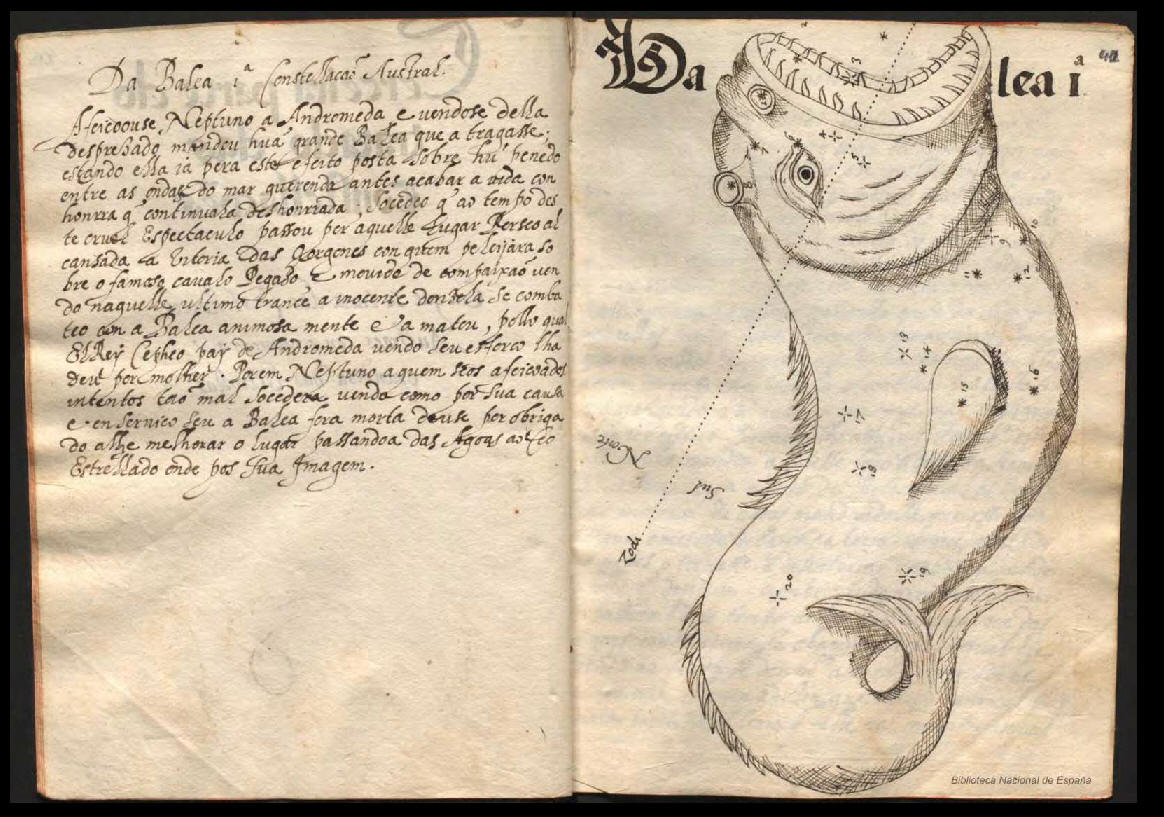 Da Balea 1ª Constellacaõ Austral.
Afeicoouse Neptuno a Andromeda e vendose della
desprezado mandou huã grande Balea que a tragasse;
estando ella ja pera este efeito posta sobre hũ penedo
entre as ondas do mar querendo antes acabar a vida con
honrra q̃ continuala deshonrrada, Socedeo q̃ ao tempo des
te cruel Espectaculo passou per aquelle Lugar Perseo al
cansada a Vitoria das Gorgones con quem peleijara so
bre o famoso cauallo Pegaso, e mouido de compaixaõ ven
do naquelle ultimo trance a inocente donzela, se comba
teo con a Balea animosa mente e a matou, pello qual
ElRey Cepheo pay de Andromeda vendo seu esforco lha
deu per molher. Porem Neptuno a quem seos afeicoados
intentos taõ mal socedera vendo como por sua causa
e en seruico seu a Balea fora morta deuse per obriga
do a lhe melhorar o lugar passandoa das Agoas ao Ceo
Estrellado onde pos sua Imagem.
Da
lea 1ª
3
4
5
8
9
10
11
12
13
14
15
16
17
18
19
20
Norte
Sul
Zodi
Biblioteca Nacional de España